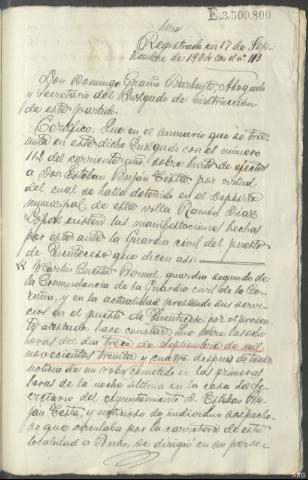 E.3.500.800
Uno
Registrado en 17 de Sep-
tiembre de 1934 con el nº 113
Don Domingo Graiño Barbeyto, Abogado
y Secretario del Juzgado de instrucción
de este partido.
Certifico: Que en el sumario que se tra-
mita en este dicho Juzgado con el número
112 del corriente año, sobre hurto de efectos
a Don Esteban Puján Testa, por virtud
del cual se halla detenido en el Depósito
municipal de esta villa Ramón Díaz
López existen las manifestaciones hechas
por este ante la Guardia civil del puesto
de Puenteceso que dicen asi:
Martín Cuesta Bernal, guardia segundo de
la Comandancia de la Guardia civil de la Co-
ruña, y en la actualidad prestando sus servi-
cios en el puesto de Puenteceso, por el presen-
te atestado, hace constar: Que sobre las ocho
horas del día trece de Septiembre de mil
novecientos treinta y cuatro, despues de tener
noticia de un robo cometido en las primeras
horas de la noche última en la casa del Se-
cretario del Ayuntamiento D. Esteban Pu-
ján Testa, y noticioso de individuo sospecho-
so que circulaba por la carretera de esta
localidad a Buño, se dirigió en su perse-
ARG